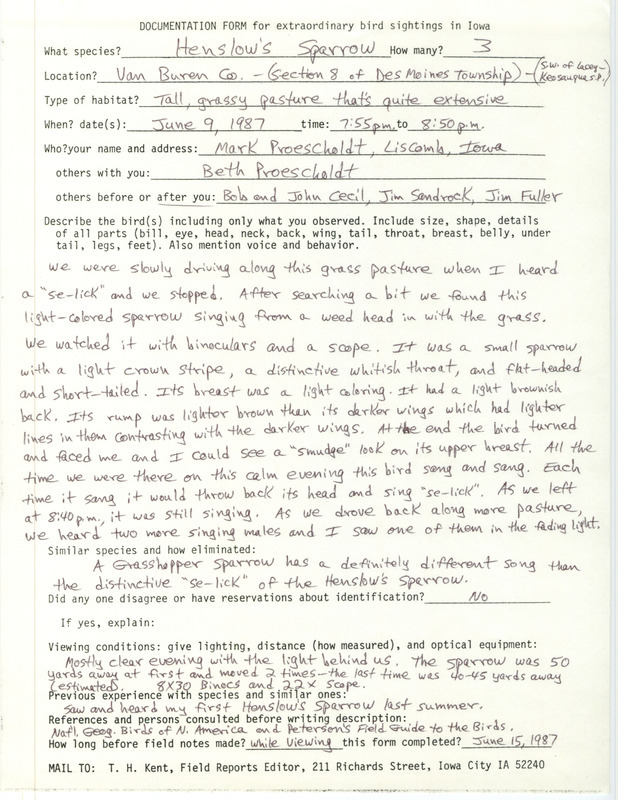 DOCUMENTATION FORM for extraordinary bird sightings in Iowa
What species? Henslow's Sparrow How many? 3
Location? Van Buren Co. - (Section 8 of Des Moines Township) - (S.W. of Lacey-Keosauqua S.P.)
Type of habitat? Tall, grassy pasture that's quite extensive
When? date(s): June 9, 1987 time: 7:55 p.m. to 8:50 p.m.
Who? your name and address: Mark Proescholdt, Liscomb, Iowa
others with you: Beth Proescholdt
others before or after you: Bob and John Cecil, Jim Sandrock, Jim Fuller
Describe the bird(s) including only what you observed. Include size, shape, details
of all parts (bill, eye, head, neck, back, wing, tail, throat, breast, belly, under
tail, legs, feet). Also mention voice and behavior.
We were slowly driving along this grass pasture when I heard
a "se-lick" and we stopped. After searching a bit we found this
light-colored sparrow singing from a weed head in with the grass.
We watched it with binoculars and a scope. It was a small sparrow
with a light crown stripe, a distinctive whitish throat, and flat-headed
and short-tailed. Its breast was a light coloring. It had a light brownish
back. Its rump was lighter brown than its darker wings which had lighter
lines in them contrasting with the darker wings. At the end the bird turned
and faced me and I could see a "smudge" look on its upper breast. All the
time we were there on this calm evening this bird sang and sang. Each
time it sang it would throw back its head and sing "se-lick". As we left
at 8:40 p.m., it was still singing. As we drove back along more pasture,
we heard two more singing males and I saw one of them in the fading light.
Similar species and how eliminated:
A Grasshopper Sparrow has a definitely different song than
the distinctive "se-lick" of the Henslow's Sparrow.
Did any one disagree or have reservations about identification? No
If yes, explain:
Viewing conditions: give lighting, distance (how measured), and optical equipment:
Mostly clear evening with the light behind us. The sparrow was 50
yards away at first and moved 2 times - the last time was 40-45 yards away
(estimated). 8X30 Binocs and 22X scope.
Previous experience with species and similar ones:
Saw and heard my first Henslow's Sparrow last summer.
References and persons consulted before writing description:
Natl. Geog. Birds of N. America and Peterson's Field Guide to the Birds.
How long before field notes made? while viewing this form completed? June 15, 1987
MAIL TO: T. H. Kent, Field Reports Editor, 211 Richards Street, Iowa City IA 52240